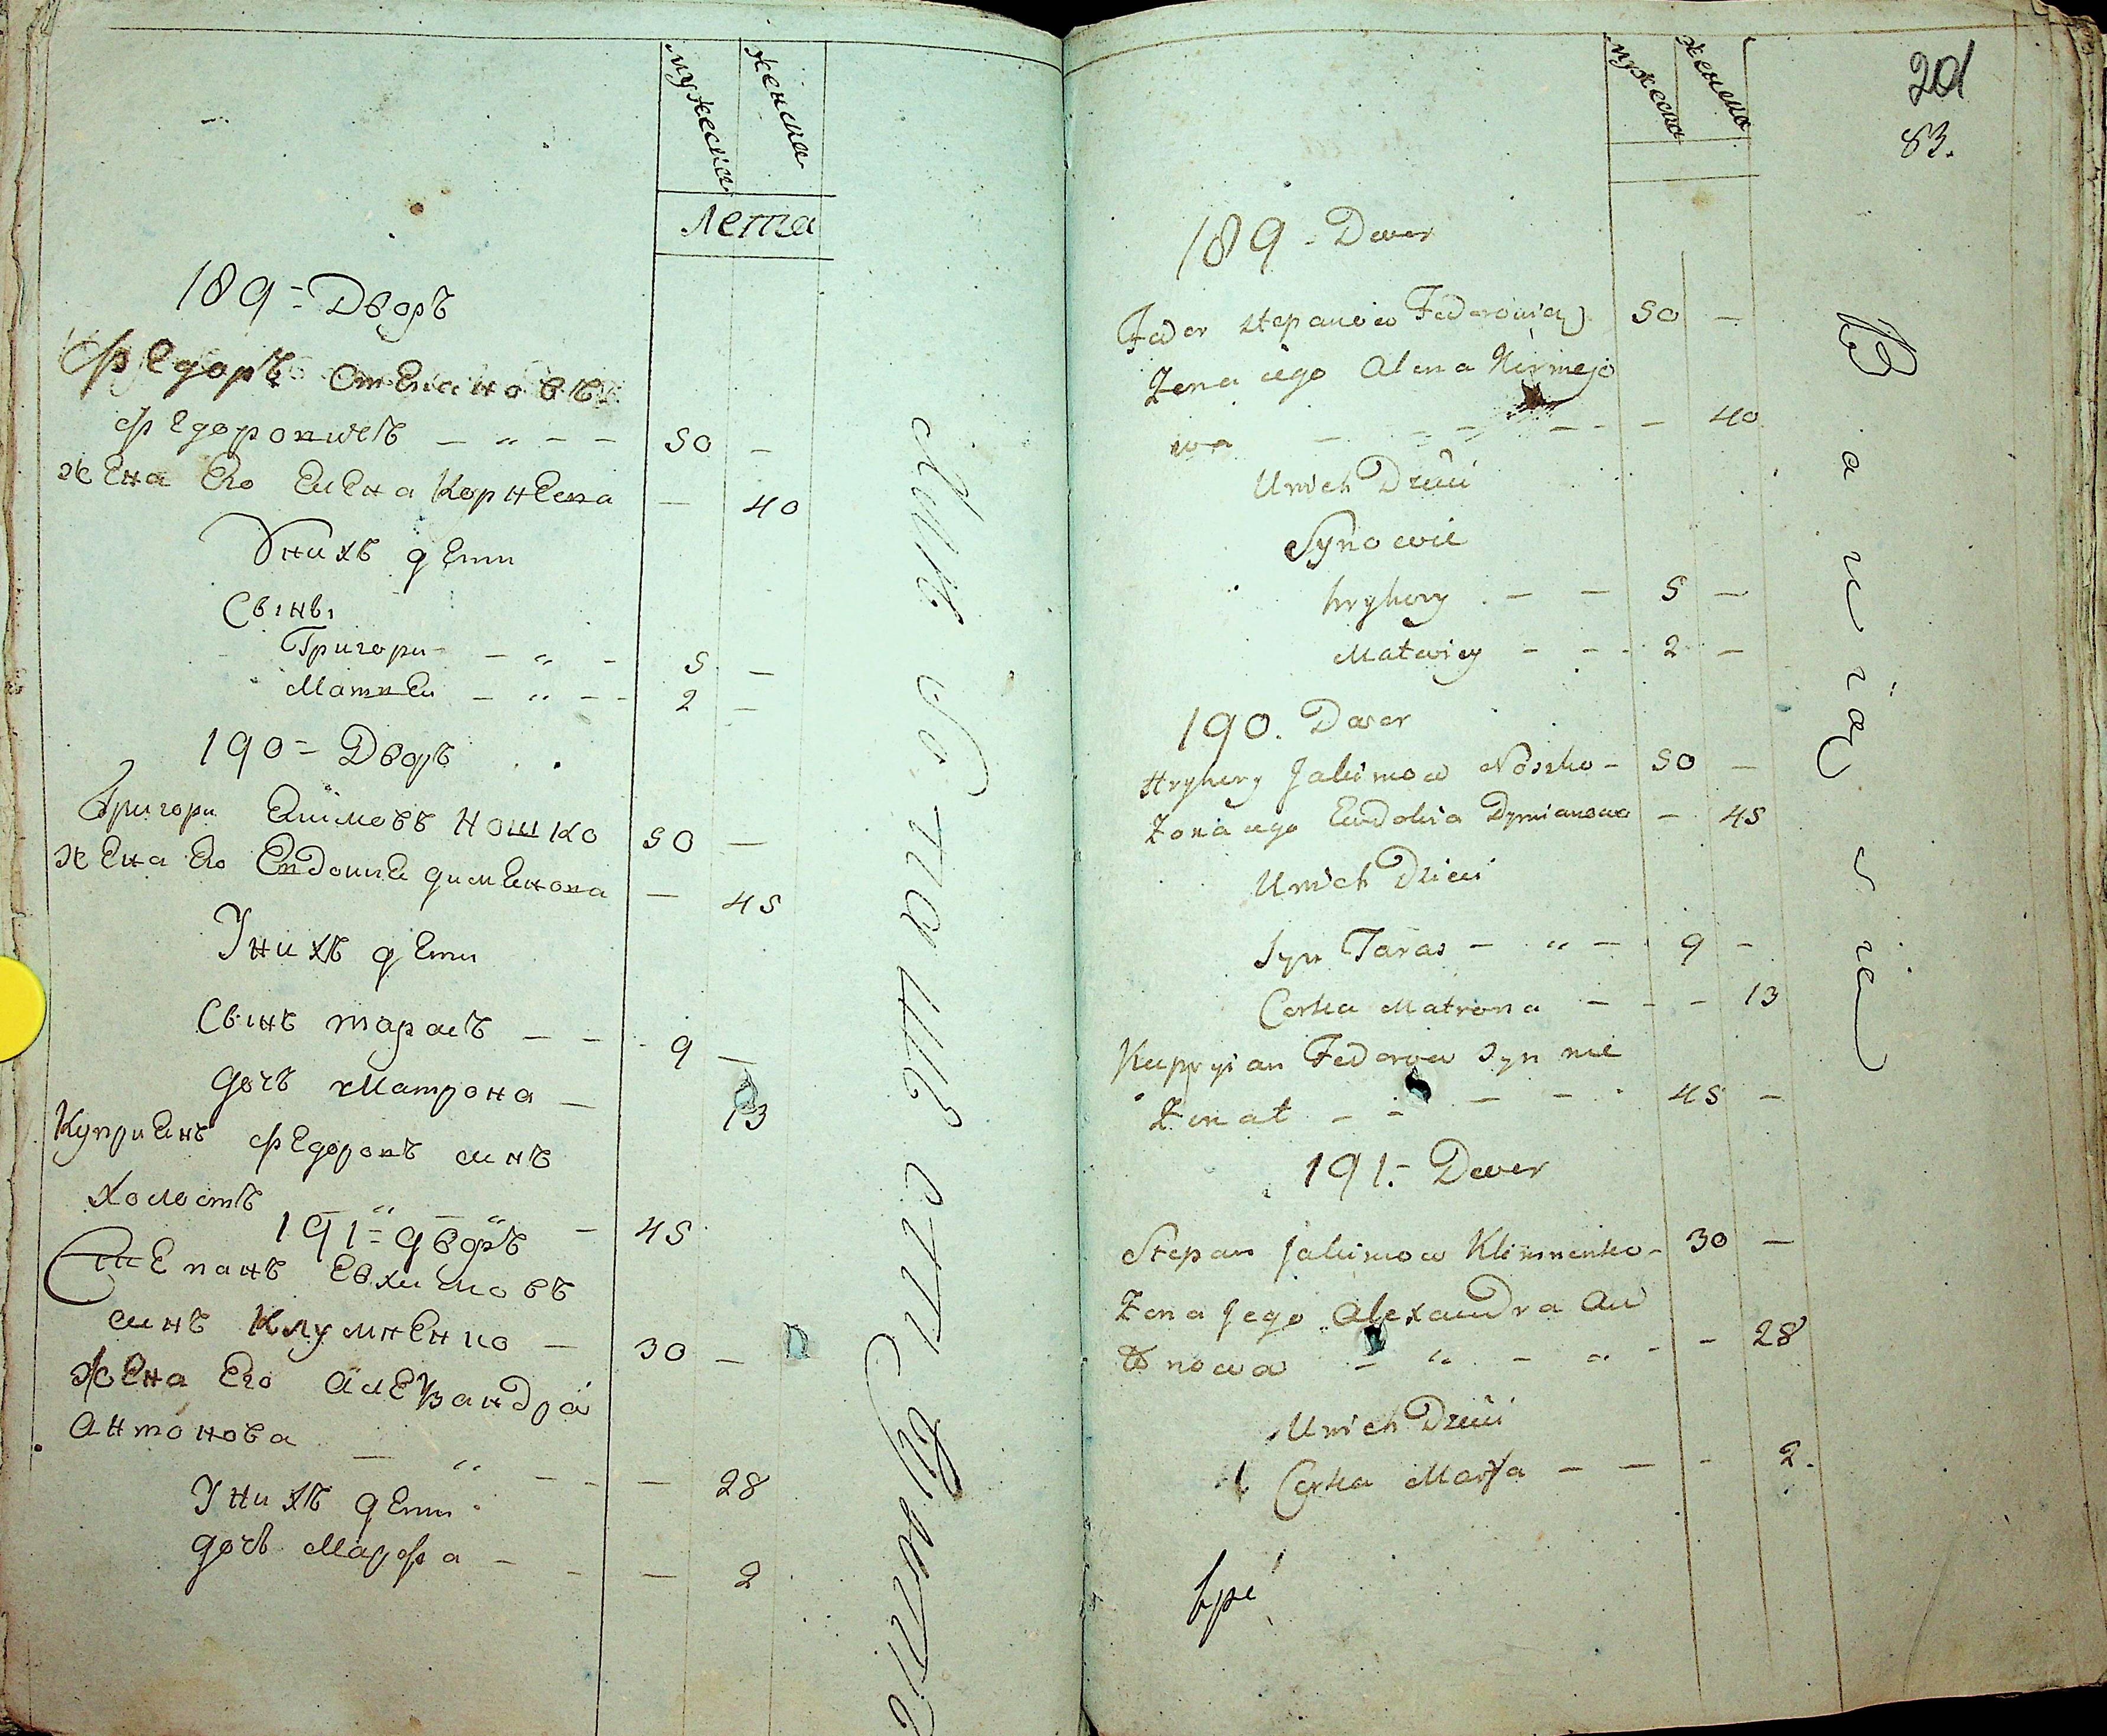 мужеска
женска
лета
189 = Дворъ
Федоръ Степановъ
Федоровичъ — „ — — 50 —
жена Его Елена Корнеева — 40
Унихъ дети
Сыны
Григори — „ — 5 —
Матвеи — „ — — 2 —
190 = Дворъ
Григори Екимовъ Ношко 50 —
жена Его Евдокие дименова — 45
Унихъ дети
Сынъ тарасъ — — 9 —
дочъ Матрона — 13
Куприенъ Федоровъ синъ
холостъ — „ — „ — 45
191 = дворъ
Степанъ Евхимовъ
синъ Клуменко — 30 —
жена Его Алеѯандра
Антонова — „ — — — 28
Унихъ дети
дочъ Марфа — — — 2
201
83.
мужеска
женска
189 - Dwor
Feder Stepanow Federowicz 50 —
Zena iego Alena Kirnejo
wa — — — — — 40
Unich Dzieci
Synowie
hryhory — — 5 —
Matwiey — — 2 —
190. Dwor
Hryhory Jakimow Noszko — 50 —
Zona iego Eudokia Dymianowa — 45
Unich Dzieci
Syn Taras — „ — 9 —
Corka Matrona — — — 13
Kupryian Fedorow Syn nie
Zonat — — — — 45 —
191.- Dwor
Stepan Jakimow Klimmenko — 30 —
Zena Jego Alexandra An
tonowa — „ — „ — — 28
Unich Dzieci
Corka Marfa — — — 2.